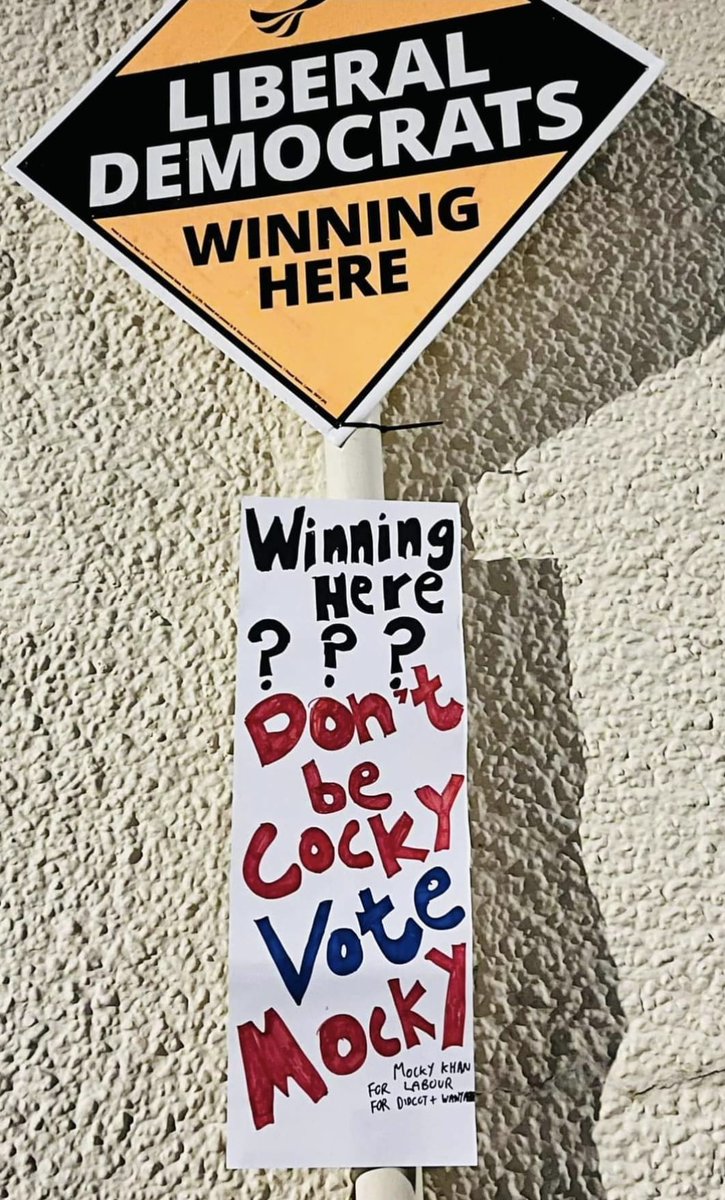 LIBERAL
DEMOCRATS
WINNING
HERE
Winning
Here
? ? ?
Don't
be
Cocky
Vote
Mocky
MOCKY KHAN
FOR LABOUR
FOR DIDCOT +